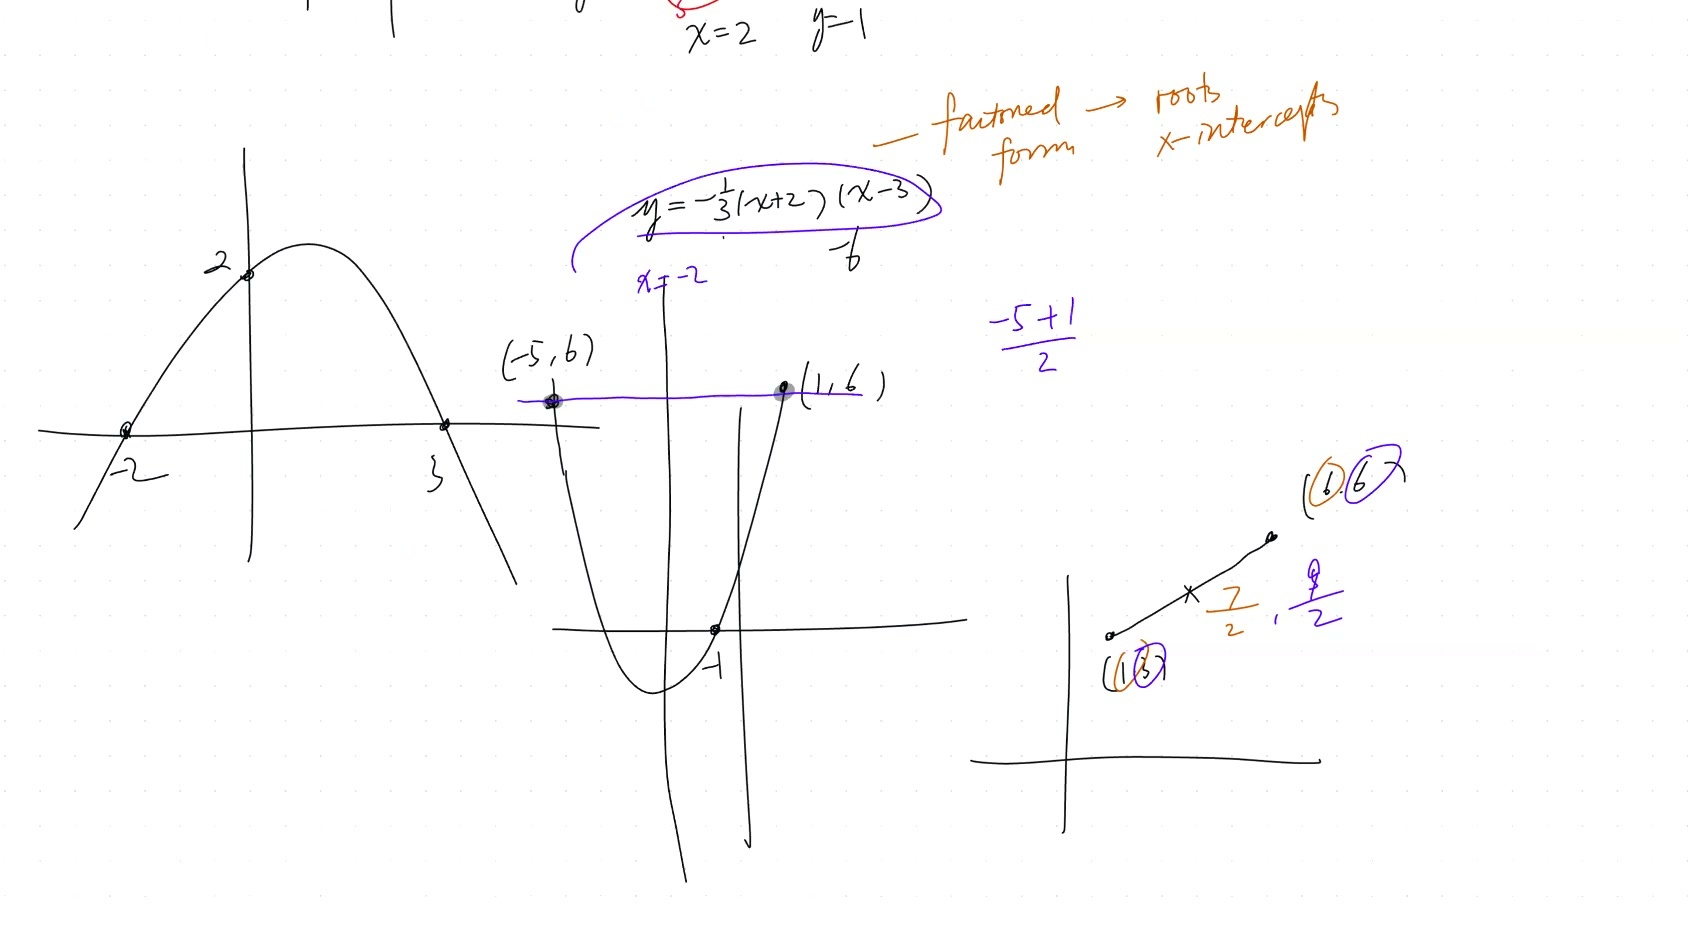 x=2 y=-1
— factored → roots
form x-intercepts
y = -1/3(x+2)(x-3)
-6
x=-2
2
-2
3
(-5,6)
(1,6)
-1
-5+1
2
(6,6)
7/2 , 9/2
(1,3)